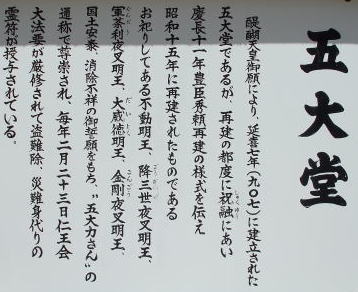 五大堂
醍醐天皇御願により、延喜七年(九〇七)に建立された
五大堂であるが、再建の都度に祝融にあい
慶長十一年豊臣秀頼再建の様式を伝え
昭和十五年に再建されたものである
お祀りしてある不動明王、降三世夜叉明王、
軍荼利夜叉明王、大威徳明王、金剛夜叉明王、
国土安泰、消除不祥の御誓願をもち、〝五大力さん〟の
通称で尊崇され、毎年二月二十三日仁王会
大法要が厳修されて盗難除 災難身代りの
霊符が授与されている。